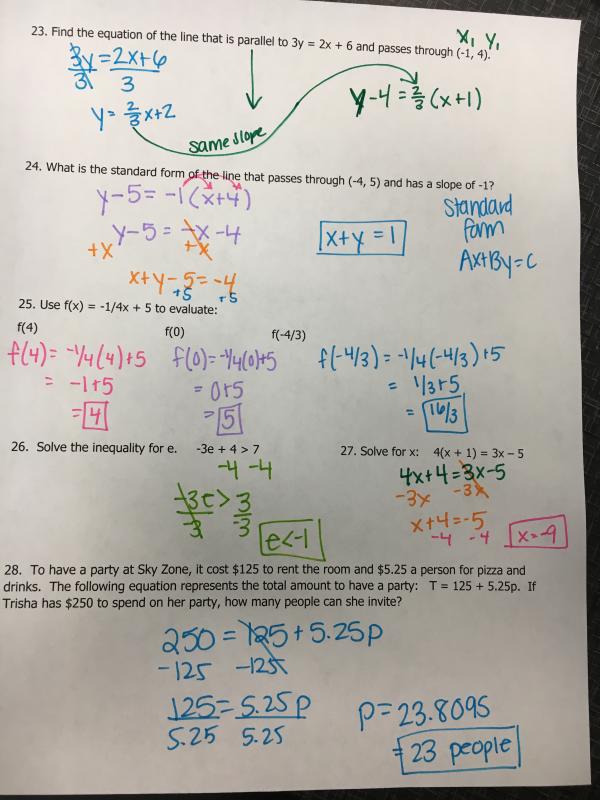 23. Find the equation of the line that is parallel to 3y = 2x + 6 and passes through (-1, 4).
x₁ y₁
3y = 2x+6
3 3
y = 2/3 x+2
same slope
y-4 = 2/3 (x+1)
24. What is the standard form of the line that passes through (-4, 5) and has a slope of -1?
y-5 = -1(x+4)
y-5 = -x -4
+x +x
x+y-5 = -4
+5 +5
x+y = 1
Standard
form
Ax+By=C
25. Use f(x) = -1/4x + 5 to evaluate:
f(4) f(0) f(-4/3)
f(4) = -1/4(4)+5 f(0)=-1/4(0)+5 f(-4/3) = -1/4(-4/3)+5
= -1+5 = 0+5 = 1/3+5
= 4 = 5 = 16/3
26. Solve the inequality for e. -3e + 4 > 7
-4 -4
-3e > 3
-3 -3
e<-1
27. Solve for x: 4(x + 1) = 3x – 5
4x+4=3x-5
-3x -3x
x+4=-5
-4 -4
x=-9
28. To have a party at Sky Zone, it cost $125 to rent the room and $5.25 a person for pizza and
drinks. The following equation represents the total amount to have a party: T = 125 + 5.25p. If
Trisha has $250 to spend on her party, how many people can she invite?
250 = 125 + 5.25p
-125 -125
125 = 5.25p
5.25 5.25
p=23.8095
= 23 people